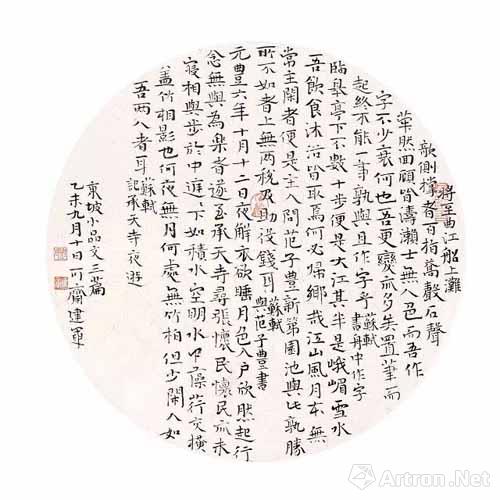 將至曲江船上灘
欹側撐者百指篙聲石聲
犖然四顧皆濤瀨士無人色而吾作
字不少衰何也吾更變亦多矣置筆而
起終不能一事孰與且作字乎
蘇軾
書舟中作字
臨皋亭下不數十步便是大江其半是峨嵋雪水
吾飲食沐浴皆取焉何必歸鄉哉江山風月本無
常主閑者便是主人問范子豐新第園池與此孰勝
所不如者上無兩稅及助役錢耳
蘇軾
與范子豐書
元豐六年十月十二日夜解衣欲睡月色入戶欣然起行
念無與為樂者遂至承天寺尋張懷民懷民亦未
寢相與步於中庭、下如積水空明水中藻荇交橫
蓋竹柏影也何夜無月何處無竹柏但少閑人如
吾兩人者耳
蘇軾
記承天寺夜遊
東坡小品文三篇
乙未九月十日可齋建軍
Artron.Net